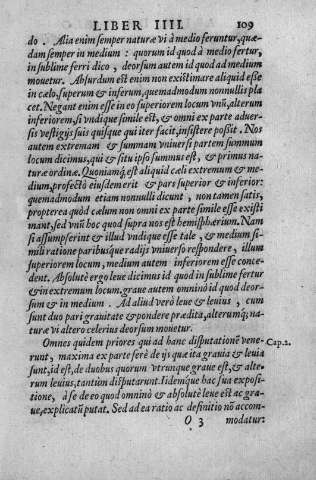 LIBER IIII. 109
do. Alia enim semper naturæ vi à medio feruntur, quæ-
dam semper in medium: quorum id quod à medio fertur,
in sublime ferri dico, deorsum autem id quod ad medium
mouetur. Absurdum est enim non existimare aliquid esse
in cælo, superum & inferum, quemadmodum nonnullis pla
cet. Negant enim esse in eo superiorem locum vnũ, alterum
inferiorem, si vndique simile est, & omni ex parte aduer-
sis vestigijs suis quisque qui iter facit, insistere possit. Nos
autem extremam & summam vniuersi partem summum
locum dicimus, qui & situ ipso summus est, & primus na-
turæ ordine. Quoniamq́. est aliquid cæli extremum & me-
dium, profectò eiusdem erit & pars superior & inferior:
quemadmodum etiam nonnulli dicunt, non tamen satis,
propterea quòd cælum non omni ex parte simile esse existi
mant, sed vnũ hoc quod supra nos est hemisphærium. Nam
si assumpserint & illud vndique esse tale, & medium si-
mili ratione paribusque radijs vniuerso respondere, illum
superiorem locum, medium autem inferiorem esse conce-
dent. Absolutè ergo leue dicimus id quod in sublime fertur
& in extremum locum. graue autem omninò id quod deor-
sum & in medium. Ad aliud verò leue & leuius, cum
sunt duo pari grauitate & pondere prædita, alterumq́; na-
turæ vi altero celerius deorsum mouetur.
Omnes quidem priores qui ad hanc disputationẽ vene- Cap.2.
runt, maxima ex parte ferè de ijs quæ ita grauia & leuia
sunt, id est, de duobus quorum vtrunque graue est, & alte-
rum leuius, tantùm disputarunt. Iidemque hac sua exposi-
tione, à se de eo quod omninò & absolutè leue est ac gra-
ue, explicatũ putat. Sed ad ea ratio ac definitio nõ accom-
O 3 modatur: